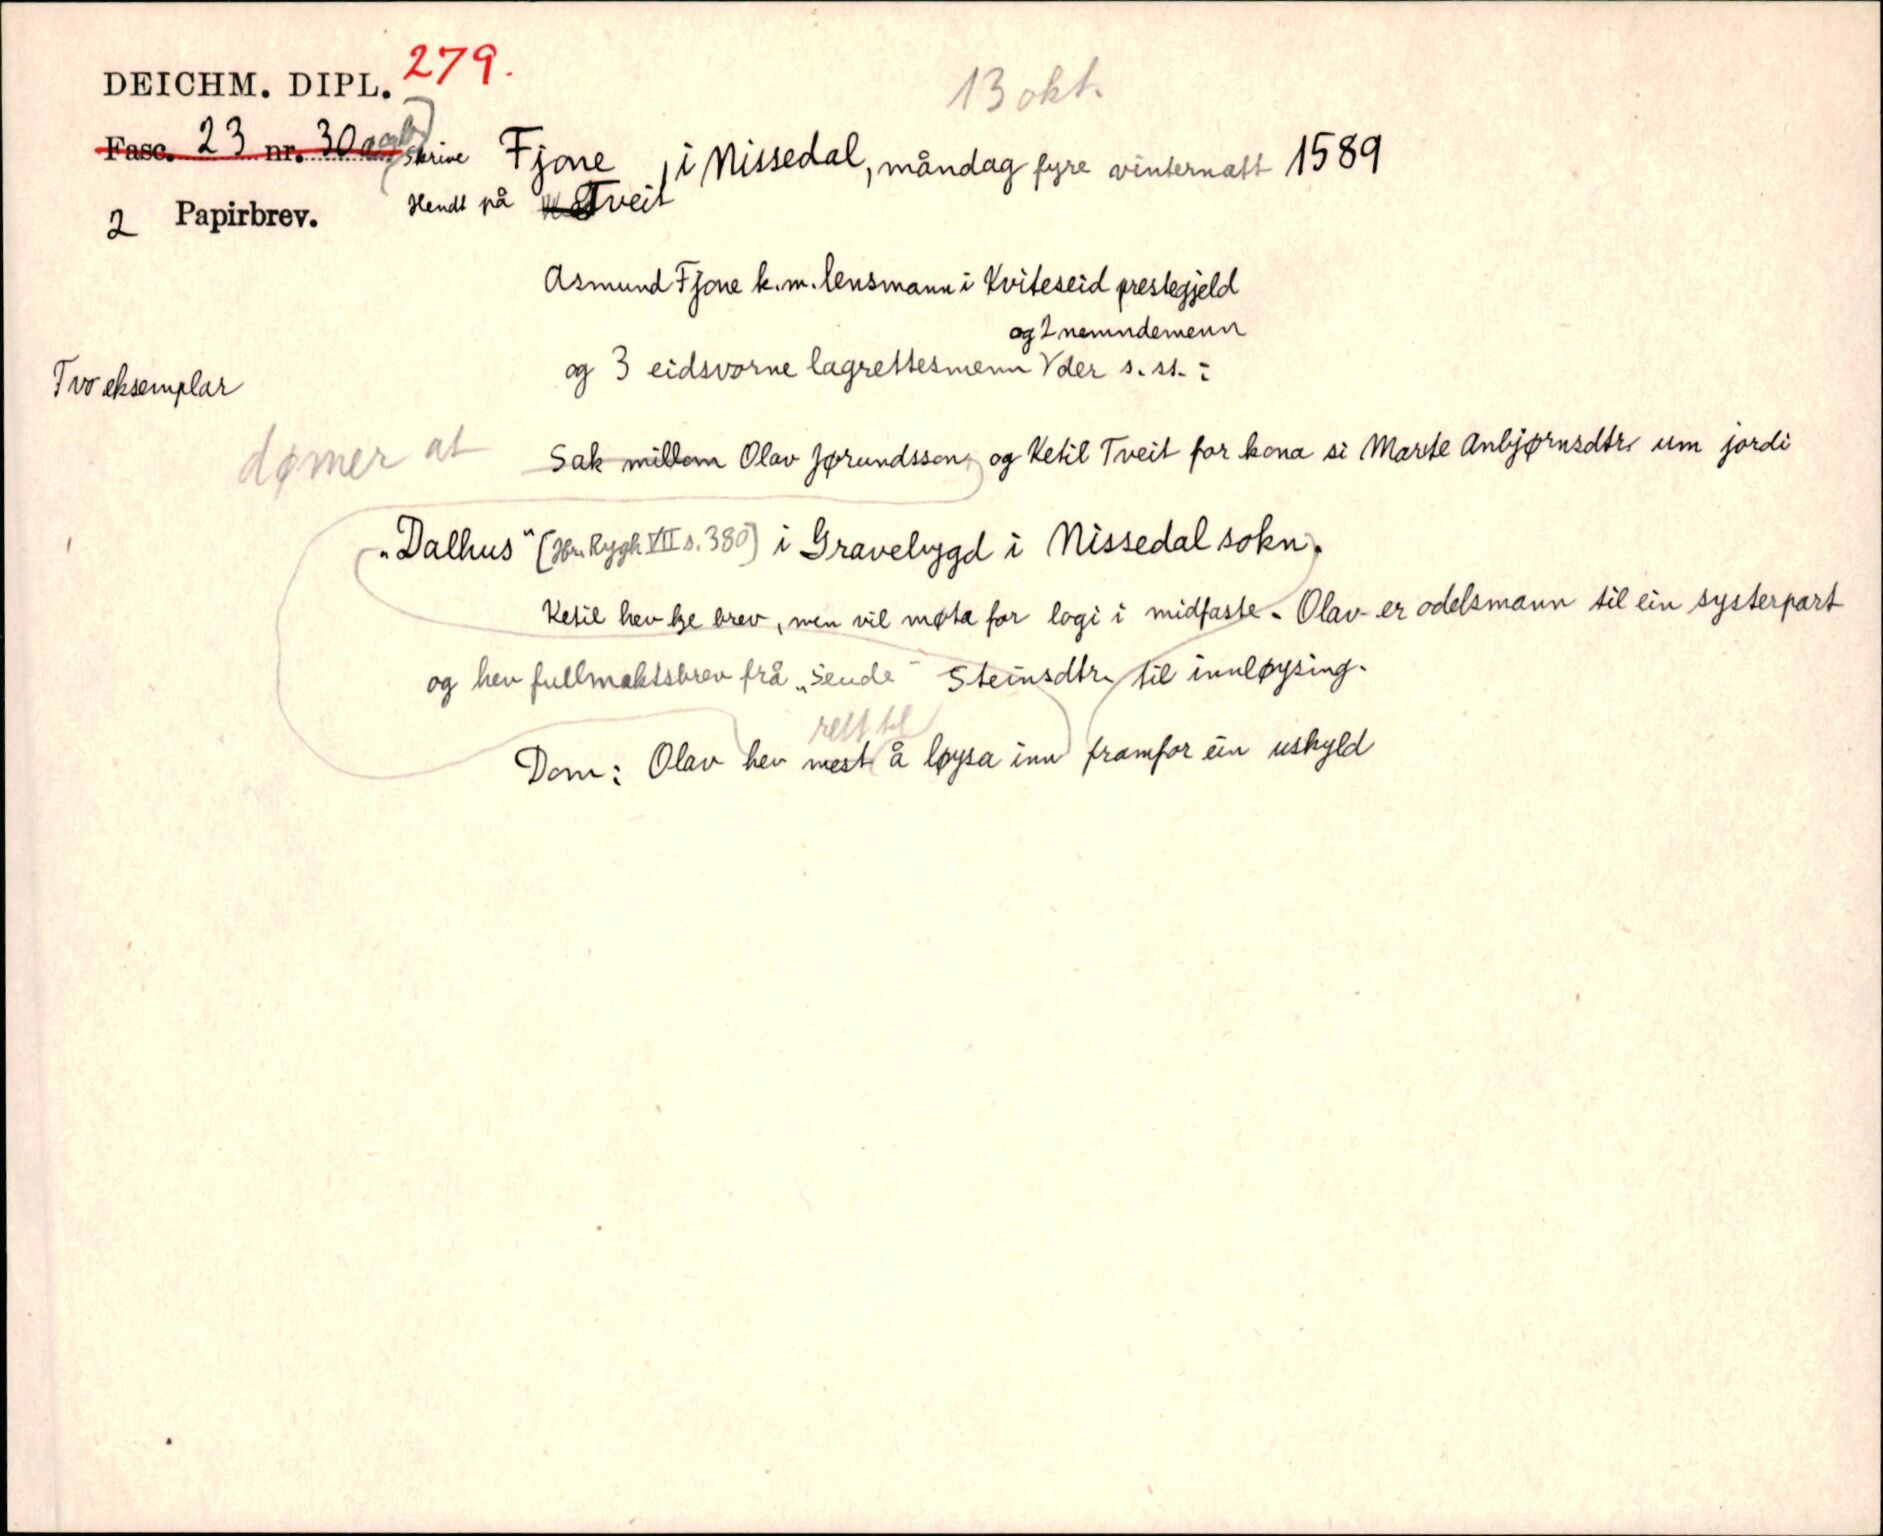 DEICHM. DIPL. 279.
13 okt.
Fasc. 23 nr. 30 a og b) Skrive Fjone, i Nissedal, måndag fyre vinternatt 1589
2 Papirbrev. Hendt på Tveit
Asmund Fjone k.m. lensmann i Kviteseid prestegjeld
og 2 nemndemenn
og 3 eidsvorne lagrettesmenn der s. st. :
Tvo eksemplar
dømer at Sak millom Olav Jørundsson og Ketil Tveit for kona si Marte Anbjørnsdtr. um jordi
„Dalhus“ (Jfr. Rygh VII s. 380) i Gravebygd i Nissedal sokn.
Ketil hev kje brev, men vil møta for logi i midfaste. Olav er odelsmann til ein systerpart
og hev fullmaktsbrev frå „Sende“ Steinsdtr. til innløysing.
rett til
Dom: Olav hev mest å løysa inn framfor ein uskyld